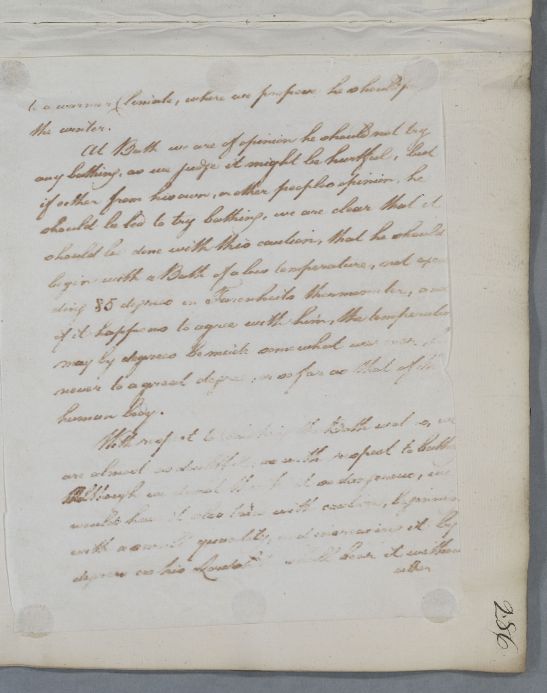 to a warmer Climate, where we propose he should
the winter.
At Bath we are of opinion he should not try
any bathing, as we judge it might be hurtful, but
if either from his own, or other peoples opinion, he
should be led to try bathing, we are clear that it
should be done with this caution, that he should
begin with a Bath of a low temperature, not excee
ding 85 degrees in Farenheits thermometer, and
if it happens to agree with him, the temperature
may by degrees be made somewhat warmer,
never to a great degree, or as far as that of the
human body.
With respect to drinking the Bath water, we
are almost as doubtful, as with respect to bathing
although we do not think it so dangerous, we
would have it also tried with caution, beginning
with a small quantity, and increasing it by
degrees as his Lordship shall bear it without
either
256